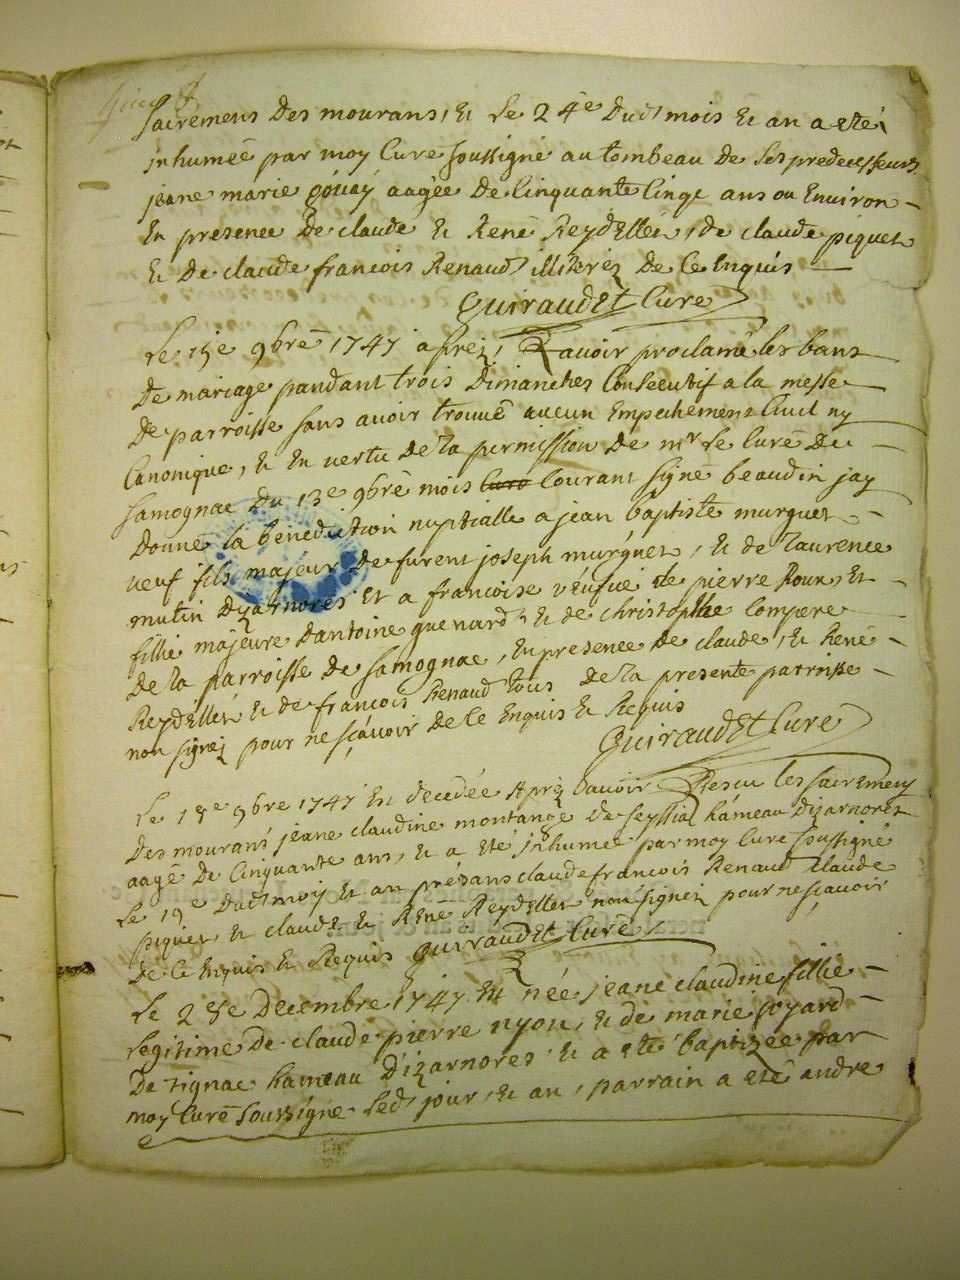 sacremens des mourans, et le 24e dudt mois et an a eté
inhumée par moy curé soussigné au tombeau de ses predecesseurs
jeane marie goüay aagée de cinquante cinqt ans ou environ
en presence de claude et René Reydellet, de claude piquet
et de claude francois Renaud illiterez de ce enquis
Guiraudet Curé
le 15e 9bre 1747 aprez avoir proclamé les bans
de mariage pandant trois dimanches consecutif a la messe
de parroisse sans avoir trouvé aucun empechement civil ny
canonique, et en vertu de la permission de mr le curé de
samognac du 13e 9bre mois courant signé beaudin jay
donné la benediction nuptialle a jean baptiste murguet
veuf fils majeur de furent joseph murguet, et de laurence
mutin dizarnores et a francoise veufue de pierre Roux, et
fillie majeure dantoine guenard et de christophle compere
de la parroisse de samognac, en presence de claude, et René
Reydellet et de francois Renaud tous de la presente parroisse
non signez pour ne sçavoir de ce enquis et Requis
Guiraudet Curé
le 18e 9bre 1747 est decedée aprez avoir Rescu les sacremens
des mourans jeane claudine montange de seyssia hameau dizarnores
aagé de cinquante ans, et a eté inhumée par moy curé soussigné
le 19e dudt mois et an présans claude francois Renaud claude
piquet et claude et René Reydellet non signez pour ne sçavoir
de ce enquis et Requis Guiraudet Curé
le 28e decembre 1747 est née jeane claudine fillie
legitime de claude pierre nyon, et de marie goyard
de tignac hameau d'izarnores et a eté baptizée par
moy curé soussigné led jour, et an, parrain a eté andre